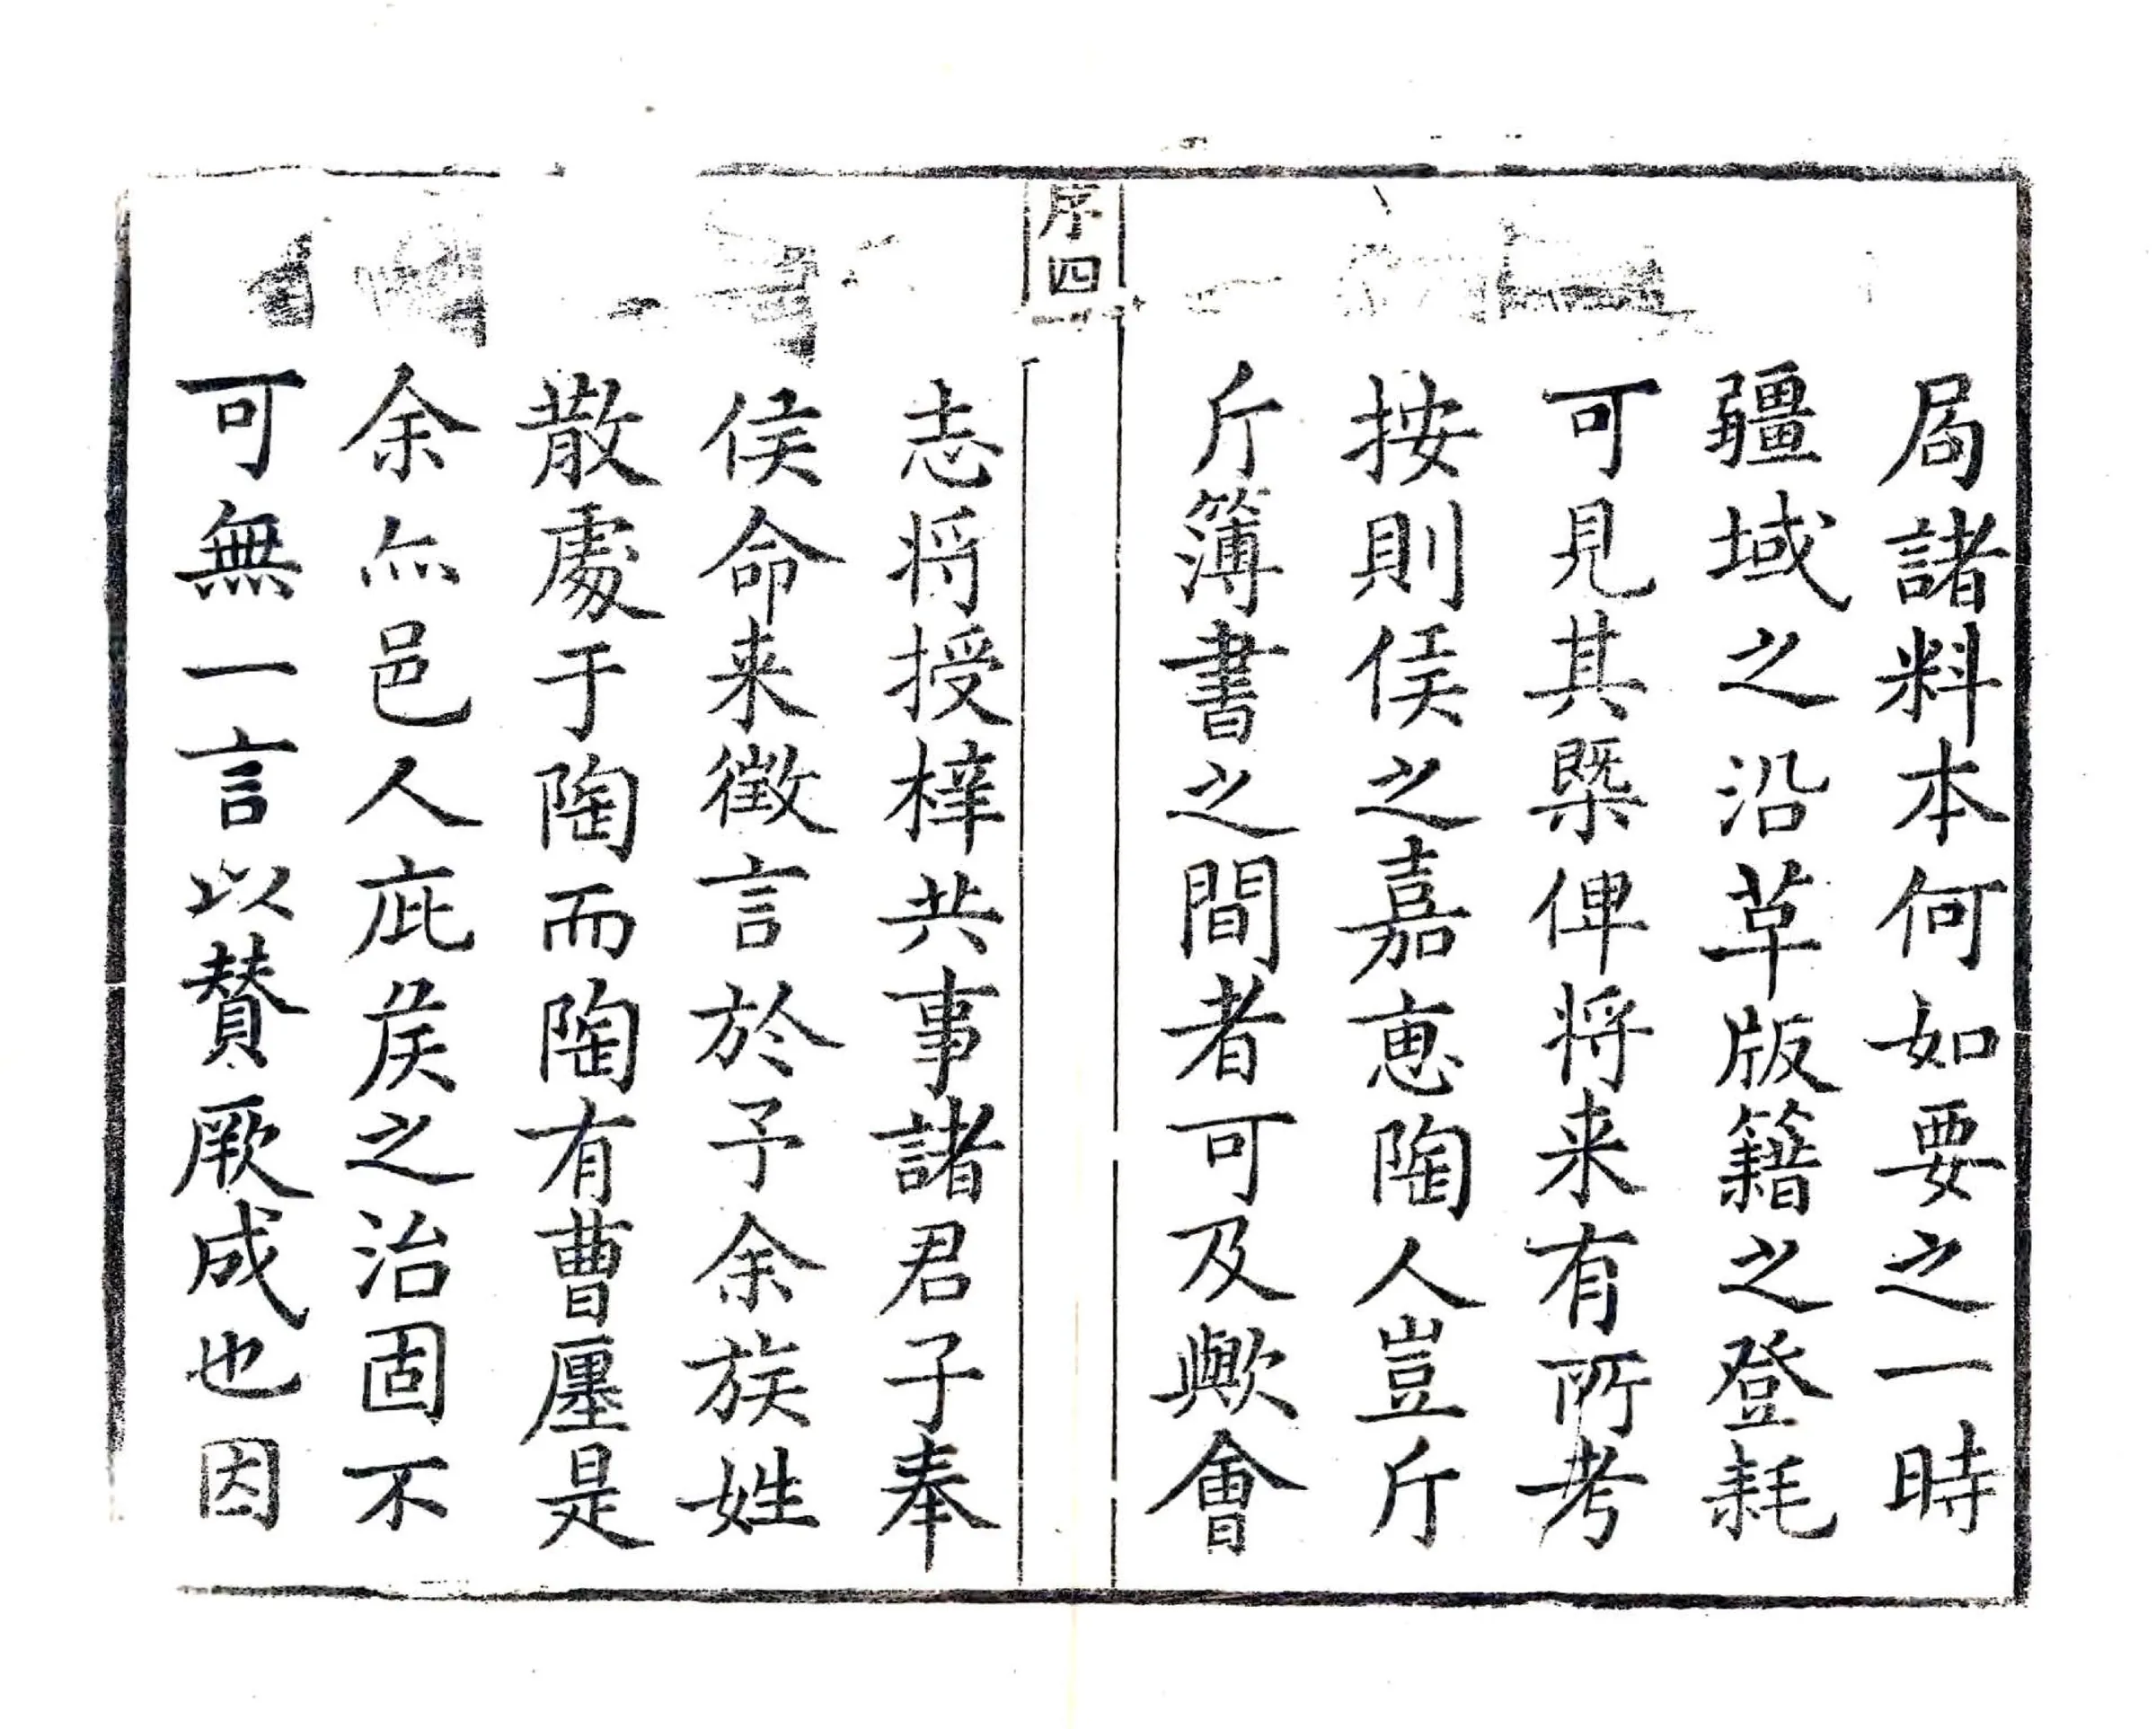 局諸料本何如要之一時
疆域之沿革版籍之登耗
可見其槩俾将来有所考
按則侯之嘉恵陶人豈斤
斤簿書之間者可及歟會
序四
志将授梓共事諸君子奉
侯命来徵言於予余族姓
散處于陶而陶有曹廛是
余亦邑人庇矦之治固不
可無一言以賛厥成也因